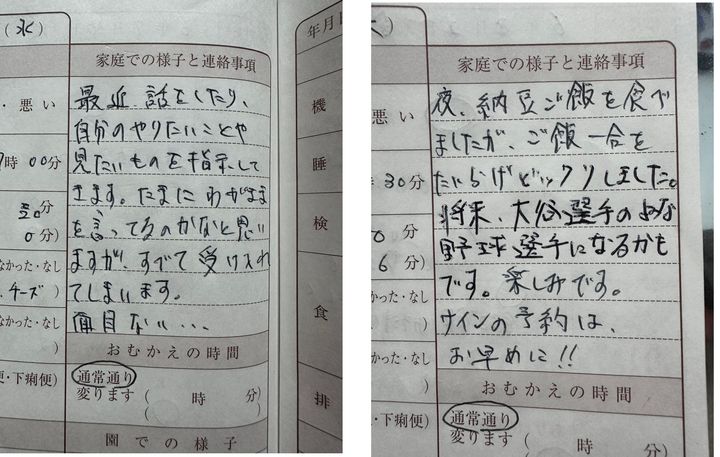 (水)
家庭での様子と連絡事項
・悪い
時00分
分
0分)
なかった・なし
.チーズ)
なかった・なし
)
便・下痢便)
最近、話をしたり、
自分のやりたいことや
見たいものを指示して
きます。たまにわがまま
を言ってるのかなと思い
ますが、すべて受け入れ
てしまいます。
面目ない...
おむかえの時間
通常通り
変ります( 時 分)
園での様子
年月日
機
睡
検
食
排
家庭での様子と連絡事項
悪い
30分
0分
6分)
かった・なし
)
かった・なし
)
・下痢便)
夜、納豆ご飯を食べ
ましたが、ご飯一合を
たいらげビックリしました。
将来、大谷選手のような
野球選手になるかも
です。楽しみです。
サインの予約は、
お早めに!!
おむかえの時間
通常通り
変ります( 時 分)